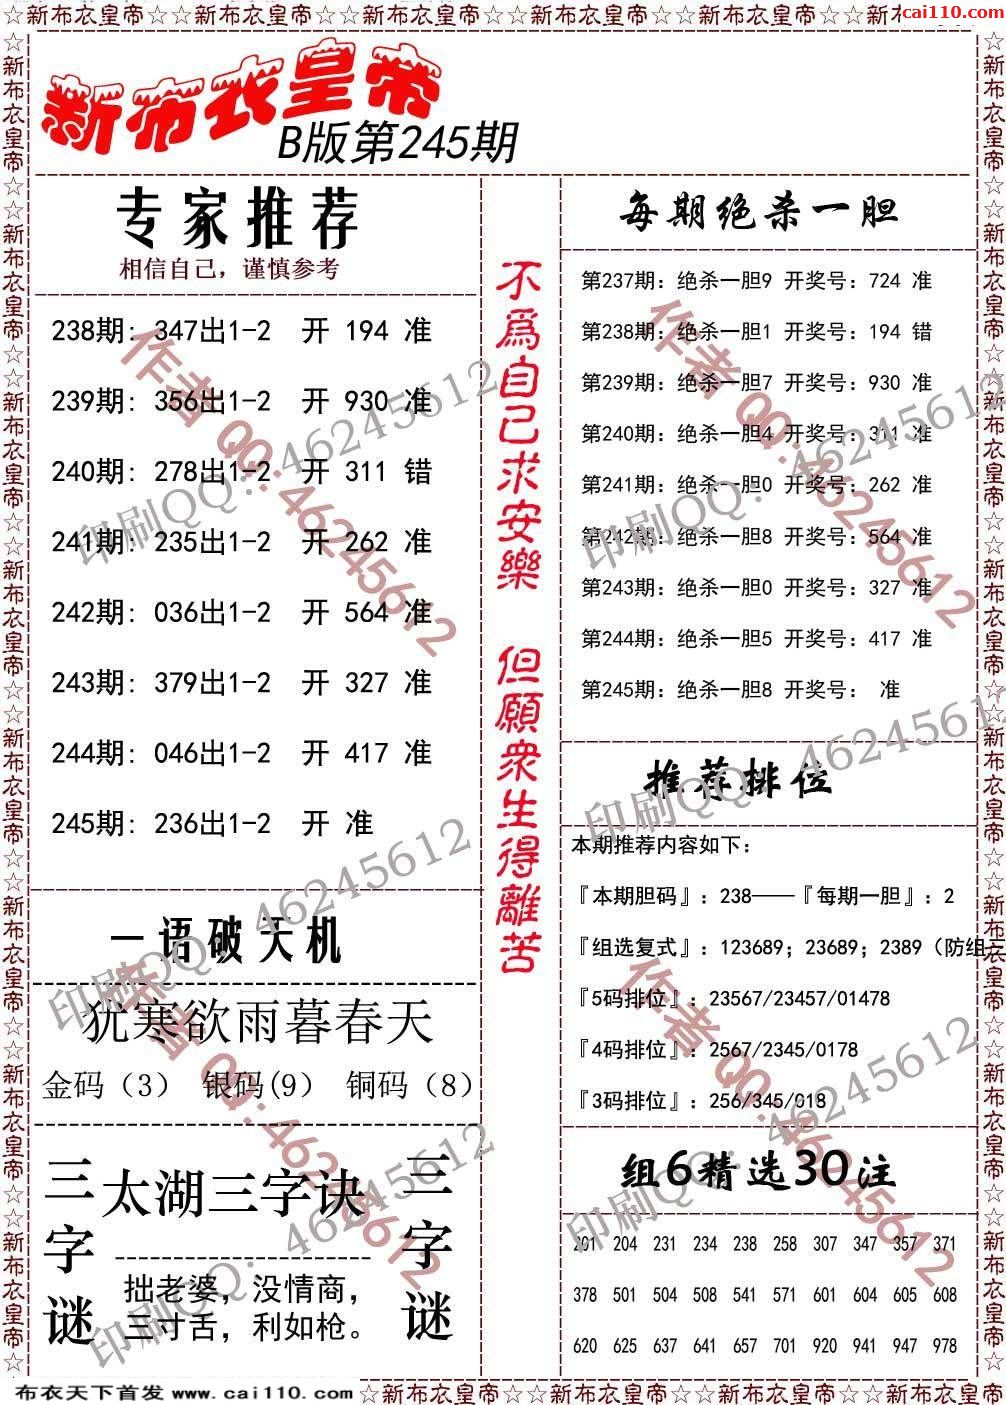 ☆新布衣皇帝☆新布衣皇帝☆新布衣皇帝☆新布衣皇帝☆新布衣皇帝☆新布衣皇帝☆新布衣皇帝☆
cai110.com
新布衣皇帝
B版第245期
专家推荐
相信自己，谨慎参考
238期: 347出1-2 开 194 准
239期: 356出1-2 开 930 准
240期: 278出1-2 开 311 错
241期: 235出1-2 开 262 准
242期: 036出1-2 开 564 准
243期: 379出1-2 开 327 准
244期: 046出1-2 开 417 准
245期: 236出1-2 开 准
一语破天机
犹寒欲雨暮春天
金码（3） 银码(9） 铜码（8）
三字谜
太湖三字诀
拙老婆，没情商，
三寸舌，利如枪。
三字谜
不為自己求安樂 但願衆生得離苦
每期绝杀一胆
第237期：绝杀一胆9 开奖号：724 准
第238期：绝杀一胆1 开奖号：194 错
第239期：绝杀一胆7 开奖号：930 准
第240期：绝杀一胆4 开奖号：311 准
第241期：绝杀一胆0 开奖号：262 准
第242期：绝杀一胆8 开奖号：564 准
第243期：绝杀一胆0 开奖号：327 准
第244期：绝杀一胆5 开奖号：417 准
第245期：绝杀一胆8 开奖号： 准
推荐排位
本期推荐内容如下：
『本期胆码』：238——『每期一胆』：2
『组选复式』：123689；23689；2389（防组三
『5码排位』：23567/23457/01478
『4码排位』：2567/2345/0178
『3码排位』：256/345/018
组6精选30注
201 204 231 234 238 258 307 347 357 371
378 501 504 508 541 571 601 604 605 608
620 625 637 641 657 701 920 941 947 978
作者 QQ:46245612
印刷QQ：46245612
作者 QQ:46245612
印刷QQ：46245612
印刷QQ：46245612
印刷QQ：46245612
作者 QQ:46245612
印刷QQ：46245612
作者 QQ:46245612
印刷QQ：46245612
布衣天下首发 www.cai110.com
☆新布衣皇帝☆☆新布衣皇帝☆☆新布衣皇帝☆☆新布衣皇帝☆